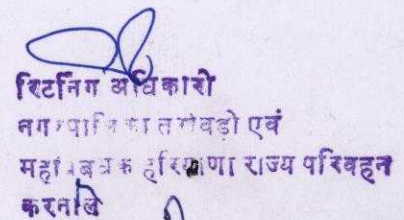 रिटर्निंग अधिकारी
नगरपालिका तरावडी एवं
महाप्रबन्धक हरियाणा राज्य परिवहन
करनाल